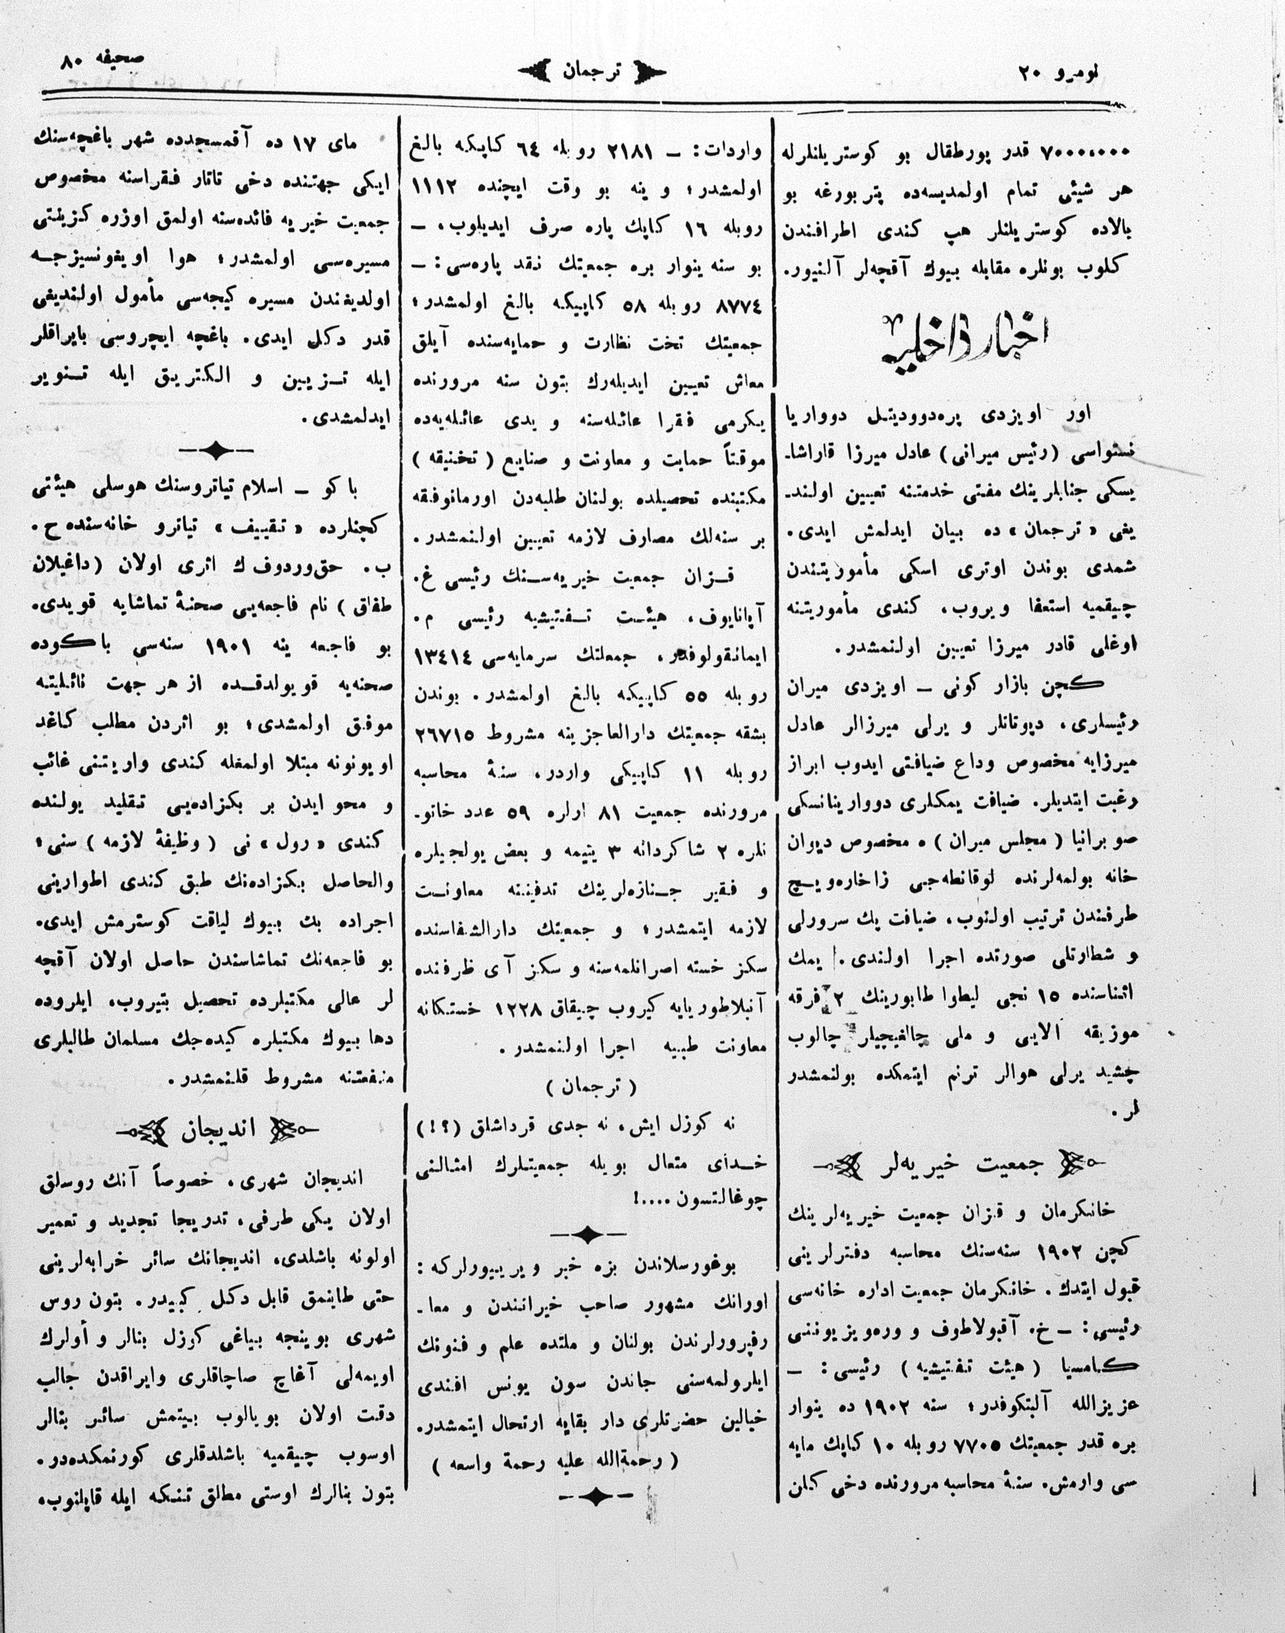 نومرو ٢٠
ترجمان
صحيفه ٨٠
٧٠٠٠،٠٠٠ قدر پورطقال بو كوستريلنلرله
هر شيئى تمام اولمديسه‌ده پتربورغه بو
بالاده كوستريلنلر هپ كندى اطرافندن
كلوب بونلره مقابله بيوك آقچه‌لر آلنيور.
اخبار داخليه
اور اويزدى پره‌دووديتل دوواريا
نستواسى (رئيس ميرانى) عادل ميرزا قاراشا-
يسكى جنابلرينك مفتى خدمتنه تعيين اولند-
يغى «ترجمان» ده بيان ايدلمش ايدى.
شمدى بوندن اوترى اسكى مأموريتندن
چيقميه استعفا ويروب، كندى مأموريتنه
اوغلى قادر ميرزا تعيين اولنمشدر.
كچن بازار كونى – اويزدى ميران
رئيسلرى، ديوتاتلر و يرلى ميرزالر عادل
ميرزايه مخصوص وداع ضيافتى ايدوب ابراز
رغبت ايتديلر. ضيافت يمكلرى دووارينانسكى
صوبرانيا (مجلس ميران) ه مخصوص ديوان
خانه بولمه‌لرنده لوقانطه‌جى زاخاره‌ويچ
طرفندن ترتيب اولنوب، ضيافت پك سرورلى
و شطارتلى صورتده اجرا اولندى. يمك
اثناسنده ١٥ نجى ليطوا طابورينك ٢ فرقه
موزيقه الايى و ملى چالغيجيلر چالوب
چشيد يرلى هوالر ترنم ايتمكده بولنمشدر
لر.
جمعيت خيريه‌لر
خانكرمان و قزان جمعيت خيريه‌لرينك
كچن ١٩٠٢ سنه‌سنك محاسبه دفترلرينى
قبول ايتدك. خانكرمان جمعيت اداره خانه‌سى
رئيسى: – خ. آقبولاطوف و وره‌ويزيوننى
كامسيا (هيئت تفتيشيه) رئيسى: –
عزيزالله آلبتكوفدر؛ سنه ١٩٠٢ ده ينوار
بره قدر جمعيتك ٧٧٠٥ روبله ١٠ كاپك مايه
سى وارمش. سنهٔ محاسبه مرورنده دخى كلن
واردات: – ٢١٨١ روبله ٦٤ كاپيكه بالغ
اولمشدر؛ و ينه بو وقت ايچنده ١١١٢
روبله ١٦ كاپك پاره صرف ايديلوب، –
بو سنه ينوار بره جمعيتك نقد پاره‌سى: –
٨٧٧٤ روبله ٥٨ كاپيكه بالغ اولمشدر؛
جمعيتك تخت نظارت و حمايه‌سنده آيلق
معاش تعيين ايديله‌رك بتون سنه مرورنده
يكرمى فقرا عائله‌سنه و يدى عائله‌يه‌ده
موقتاً حمايت و معاونت و صنايع (تخنيقه)
مكتبنده تحصيلده بولنان طلبه‌دن اورمانوفقه
بر سنه‌لك مصارف لازمه تعيين اولنمشدر.
قزان جمعيت خيريه‌سنك رئيسى غ.
آپانايوف، هيئت تفتيشيه رئيسى م.
ايمانقولوفدر، جمعلتك سرمايه‌سى ١٣٤١٤
روبله ٥٥ كاپيكه بالغ اولمشدر. بوندن
بشقه جمعيتك دارالعاجزينه مشروط ٢٦٧١٥
روبله ١١ كاپيكى واردر، سنهٔ محاسبه
مرورنده جمعيت ٨١ ارلره ٥٩ عدد خاتو-
نلره ٢ شاكردانه ٣ يتيمه و بعض يولجيلره
و فقير جنازه‌لرينك تدفيننه معاونت
لازمه ايتمشدر؛ و جمعيتك دارالشفاسنده
سكز خسته اصرانلمه‌سنه و سكز آى ظرفنده
آنبلاطوريايه كيروب چيقاق ١٢٢٨ خستكانه
معاونت طبيه اجرا اولنمشدر.
(ترجمان)
نه كوزل ايش، نه جدى قرداشلق (؟!)
خداى متعال بويله جمعيتلرك امثالنى
چوغالتسون....!
بوغورسلاندن بزه خبر ويرييورلركه:
اورانك مشهور صاحب خيراتندن و معا-
رفپرورلرندن بولنان و ملتده علم و فنونك
ايلرولمه‌سنى جاندن سون يونس افندى
خيالين حضرتلرى دار بقايه ارتحال ايتمشدر.
(رحمةالله عليه رحمة واسعه)
ماى ١٧ ده آقمسجدده شهر باغچه‌سنك
ايكى جهتنده دخى تاتار فقراسنه مخصوص
جمعيت خيريه فائده‌سنه اولمق اوزره كزينتى
مسيره‌سى اولمشدر؛ هوا اويغونسيزجه
اولديغندن مسيره كيجه‌سى مأمول اولنديغى
قدر دكل ايدى. باغچه ايچروسى بايراقلر
ايله تزيين و الكتريق ايله تنوير
ايدلمشدى.
باكو – اسلام تياتروسنك هوسلى هيئتى
كچنلرده «تقييف» تياترو خانه‌سنده ح.
ب. حق‌وردوف ك اثرى اولان (داغيلان
طفاق) نام فاجعه‌يى صحنهٔ تماشايه قويدى.
بو فاجعه ينه ١٩٠١ سنه‌سى باكوده
صحنه‌يه قويولدقده از هر جهت نائليته
موفق اولمشدى؛ بو اثردن مطلب كاغد
اويونونه مبتلا اولمغله كندى واريتنى غائب
و محو ايدن بر بكزاده‌يى تقليد يولنده
كندى «رول» نى (وظيفهٔ لازمه) سنى؛
والحاصل بكزاده‌نك طبق كندى اطوارينى
اجراده پك بيوك لياقت كوسترمش ايدى.
بو فاجعه‌نك تماشاسندن حاصل اولان آقچه
لر عالى مكتبلرده تحصيل بتيروب، ايلروده
دها بيوك مكتبلره كيده‌جك مسلمان طالبلرى
منفعتنه مشروط قلنمشدر.
انديجان
انديجان شهرى، خصوصاً آنك روسلق
اولان يكى طرفى، تدريجا تجديد و تعمير
اولونه باشلدى، انديجانك سائر خرابه‌لرينى
حتى طانيمق قابل دكل كبيدر. بتون روس
شهرى بوينجه بياغى كوزل بنالر و أولرك
اويمه‌لى آغاچ صاچاقلرى وايراقدن جالب
دقت اولان بويالوب بيتمش سائر بنالر
اوسوب چيقميه باشلدقلرى كورنمكده‌در.
بتون بنالرك اوستى مطلق تنكه ايله قاپلنوب،